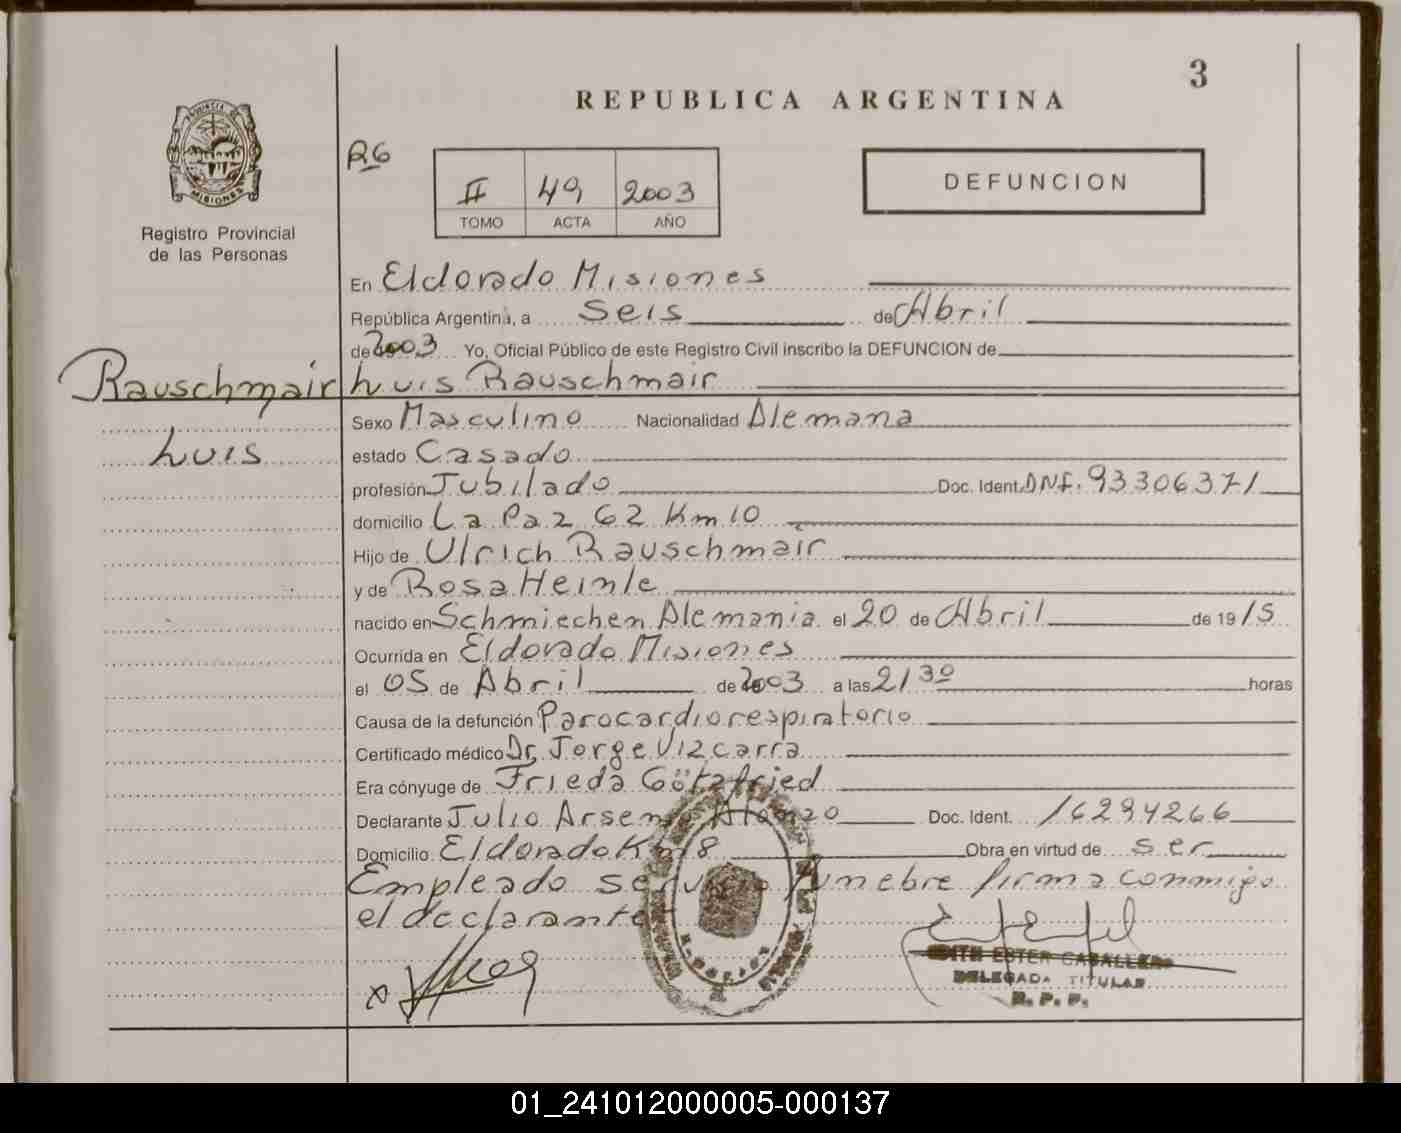 3
REPUBLICA ARGENTINA
PROVINCIA DE
MISIONES
Registro Provincial
de las Personas
R6
II 49 2003
TOMO ACTA AÑO
DEFUNCION
En Eldorado Misiones
República Argentina, a Seis de Abril
de 2003 Yo, Oficial Público de este Registro Civil inscribo la DEFUNCION de
Rauschmair Luis Rauschmair
Sexo Masculino Nacionalidad Alemana
Luis estado Casado
profesión Jubilado Doc. Ident. DNI. 93306371
domicilio La Paz 62 Km 10
Hijo de Ulrich Rauschmair
y de Rosa Heinle
nacido en Schmiechen Alemania el 20 de Abril de 1915
Ocurrida en Eldorado Misiones
el 05 de Abril de 2003 a las 21 30 horas
Causa de la defunción Parocardiorespiratorio
Certificado médico Dr. Jorge Vizcarra
Era cónyuge de Frieda Götzfried
Declarante Julio Arsenio Alonzo Doc. Ident. 16294266
Domicilio Eldorado Km 8 Obra en virtud de ser
Empleado servicio funebre firma conmigo
el declarante
x
EDITH ESTER CABALLERO
DELEGADA TITULAR
R. P. P.
01_241012000005-000137